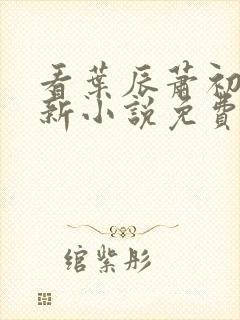 看葉辰蕭初
新小說免費
綰紫彤